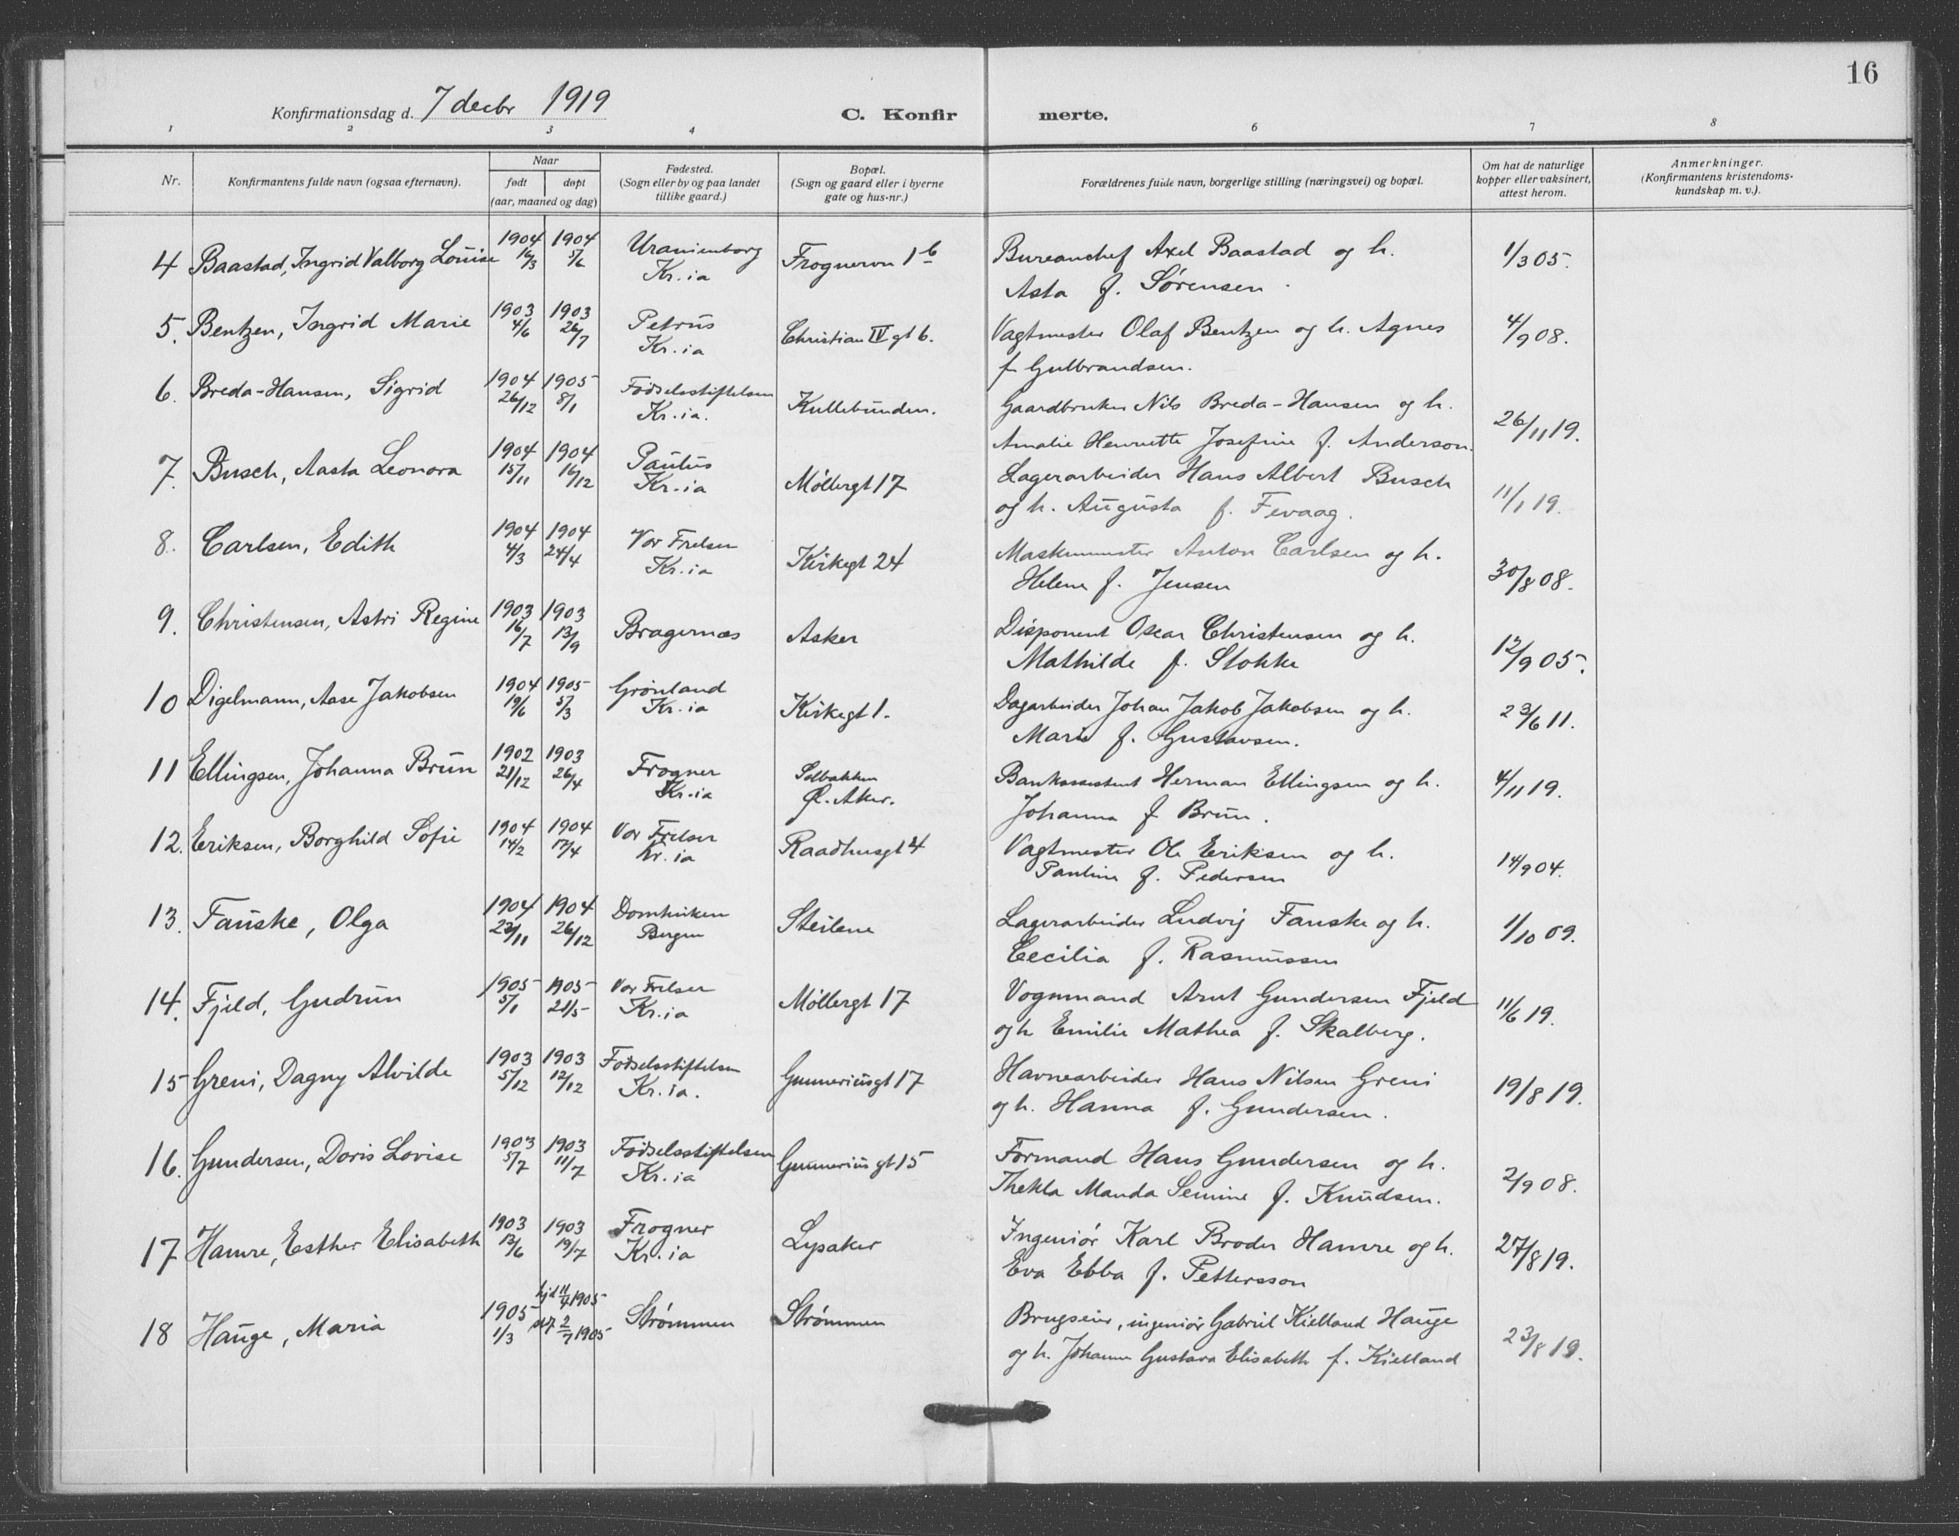 16
Konfirmationsdag d. 7 decbr 1919 C. Konfir merte.
1 2 3 4 5 6 7 8
Nr. Konfirmantens fulde navn (ogsaa efternavn). Naar født døpt (aar, maaned og dag) Fødested. (Sogn eller by og paa landet tillike gaard.) Bopæl. (Sogn og gaard eller i byerne gate og hus-nr.) Forældrenes fulde navn, borgerlige stilling (næringsvei) og bopæl. Om hat de naturlige kopper eller vaksinert, attest herom. Anmerkninger. (Konfirmantens kristendoms-kundskap m. v.).
4 Baastad, Ingrid Valborg Louise 1904 16/3 1904 5/6 Uranienborg Kr.ia Frognervn 1b Bureauchef Axel Baastad og h. 1/3 05.
Asta f. Sørensen.
5. Bentzen, Ingrid Marie 1903 4/6 1903 26/7 Petrus Kr.ia Christian IV gt 6. Vagtmester Olaf Bentzen og h. Agnes 4/9 08.
f. Gulbrandsen.
6. Breda-Hansen, Sigrid 1904 26/12 1905 8/1 Fødselsstiftelsen Kr.ia. Kullebunden. Gaardbruker Nils Breda-Hansen og h. 26/11 19.
Amalie Henriette Josefine f. Anderson.
7. Busch, Aasta Leonora 1904 15/11 1904 16/12 Paulus Kr.ia Møllergt 17 Lagerarbeider Hans Albert Busch 11/1 19.
og h. Augusta f. Fevaag.
8. Carlsen, Edith 1904 4/3 1904 24/4 Vor Frelser Kr.ia Kirkegt 24 Maskinmester Anton Carlsen og h. 30/8 08.
Helene f. Jensen
9. Christensen, Astri Regine 1903 16/7 1903 13/9 Bragernæs Asker Disponent Oscar Christensen og h. 12/9 05.
Mathilde f. Stokke
10 Digelmann, Aase Jakobsen 1904 19/6 1905 5/3 Grønland Kr.ia Kirkegt 1. Dagarbeider Johan Jakob Jakobsen og h. 23/6 11.
Marie f. Gustavsen.
11 Ellingsen, Johanna Brun 1902 21/12 1903 26/4 Frogner Kr.ia Solbakken Ø. Aker. Bankassistent Herman Ellingsen og h. 4/11 19.
Johanna f. Brun.
12. Eriksen, Borghild Sofie 1904 14/2 1904 17/4 Vor Frelser Kr.ia Raadhusgt 4 Vagtmester Ole Eriksen og h. 14/9 04.
Pauline f. Pedersen
13. Fauske, Olga 1904 23/11 1904 26/12 Domkirken Bergen Steilene Lagerarbeider Ludvig Fauske og h. 1/10 09.
Cecilia f. Rasmussen
14. Fjeld, Gudrun 1905 5/1 1905 21/5 Vor Frelser Kr.ia Møllergt 17 Vognmand Arnt Gundersen Fjeld 11/6 19.
og h Emilie Mathea f. Skalberg.
15 Greni, Dagny Alvilde 1903 5/12 1903 12/12 Fødselsstiftelsen Kr.ia. Gunneriusgt 17 Havnearbeider Hans Nilsen Greni 19/8 19.
og h. Hanna f. Gundersen.
16. Gundersen, Doris Lovise 1903 5/7 1903 11/7 Fødselsstiftelsen Kr.ia Gunneriusgt 15 Formand Hans Gundersen og h. 2/9 08.
Thekla Manda Semine f. Knudsen.
17 Hamre, Esther Elisabeth 1903 13/6 1903 19/7 Frogner Kr.ia Lysaker Ingeniør Karl Broder Hamre og h. 27/8 19.
Eva Ebba f. Pettersson
18 Hauge, Maria 1905 1/3 hjd 11/4 1905 stf 2/7 1905 Strømmen Strømmen Brugseier, ingeniør Gabriel Kielland Hauge 23/8 19.
og h. Johanne Gustava Elisabeth f. Kielland